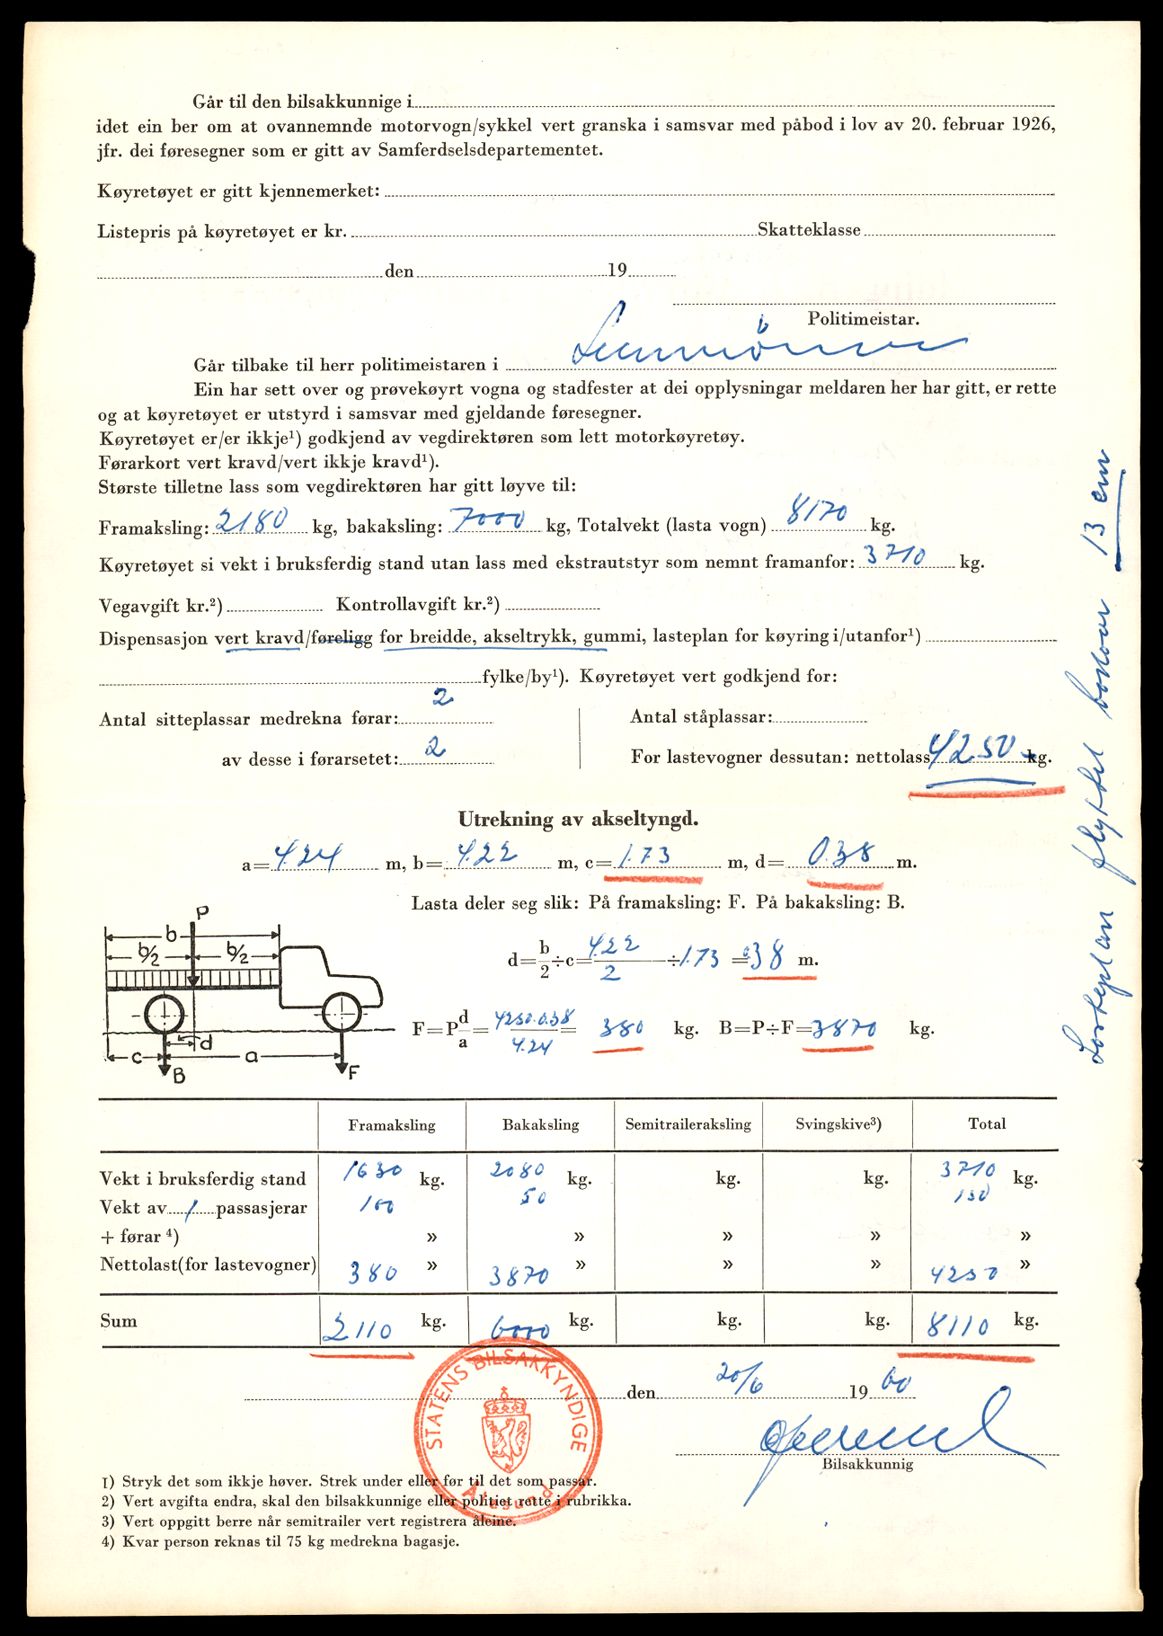 Går til den bilsakkunnige i
idet ein ber om at ovannemnde motorvogn/sykkel vert granska i samsvar med påbod i lov av 20. februar 1926,
jfr. dei føresegner som er gitt av Samferdselsdepartementet.
Køyretøyet er gitt kjennemerket:
Listepris på køyretøyet er kr. Skatteklasse
den 19
Politimeistar.
Går tilbake til herr politimeistaren i Sunnmøre
Ein har sett over og prøvekøyrt vogna og stadfester at dei opplysningar meldaren her har gitt, er rette
og at køyretøyet er utstyrd i samsvar med gjeldande føresegner.
Køyretøyet er/er ikkje¹) godkjend av vegdirektøren som lett motorkøyretøy.
Førarkort vert kravd/vert ikkje kravd¹).
Største tilletne lass som vegdirektøren har gitt løyve til:
Framaksling: 2180 kg, bakaksling: 7000 kg, Totalvekt (lasta vogn) 8170 kg.
Køyretøyet si vekt i bruksferdig stand utan lass med ekstrautstyr som nemnt framanfor: 3710 kg.
Vegavgift kr.²) Kontrollavgift kr.²)
Dispensasjon vert kravd/føreligg for breidde, akseltrykk, gummi, lasteplan for køyring i/utanfor¹)
fylke/by¹). Køyretøyet vert godkjend for:
Antal sitteplassar medrekna førar: 2 Antal ståplassar:
av desse i førarsetet: 2 For lastevogner dessutan: nettolass 4250 kg.
Lasteplan flyttet bakover 13 cm
Utrekning av akseltyngd.
a= 4.24 m, b= 4.22 m, c= 1.73 m, d= 0.38 m.
Lasta deler seg slik: På framaksling: F. På bakaksling: B.
d=b/2÷c= 4.22/2 ÷ 1.73 = 0.38 m.
F=P d/a = 4250·0.38/4.24 = 380 kg. B=P÷F= 3870 kg.
P
b
b/2 b/2
d
c a
B F
Framaksling Bakaksling Semitraileraksling Svingskive³) Total
Vekt i bruksferdig stand 1630 kg. 2080 kg. kg. kg. 3710 kg.
Vekt av 1 passasjerar 100 50 150
+ førar ⁴) » » » » »
Nettolast(for lastevogner) 380 » 3870 » » » 4250 »
Sum 2110 kg. 6000 kg. kg. kg. 8110 kg.
den 20/6 19 60
STATENS BILSAKKYNDIGE
Ålesund
Bilsakkunnig
1) Stryk det som ikkje høver. Strek under eller før til det som passar.
2) Vert avgifta endra, skal den bilsakkunnige eller politiet rette i rubrikka.
3) Vert oppgitt berre når semitrailer vert registrera åleine.
4) Kvar person reknas til 75 kg medrekna bagasje.